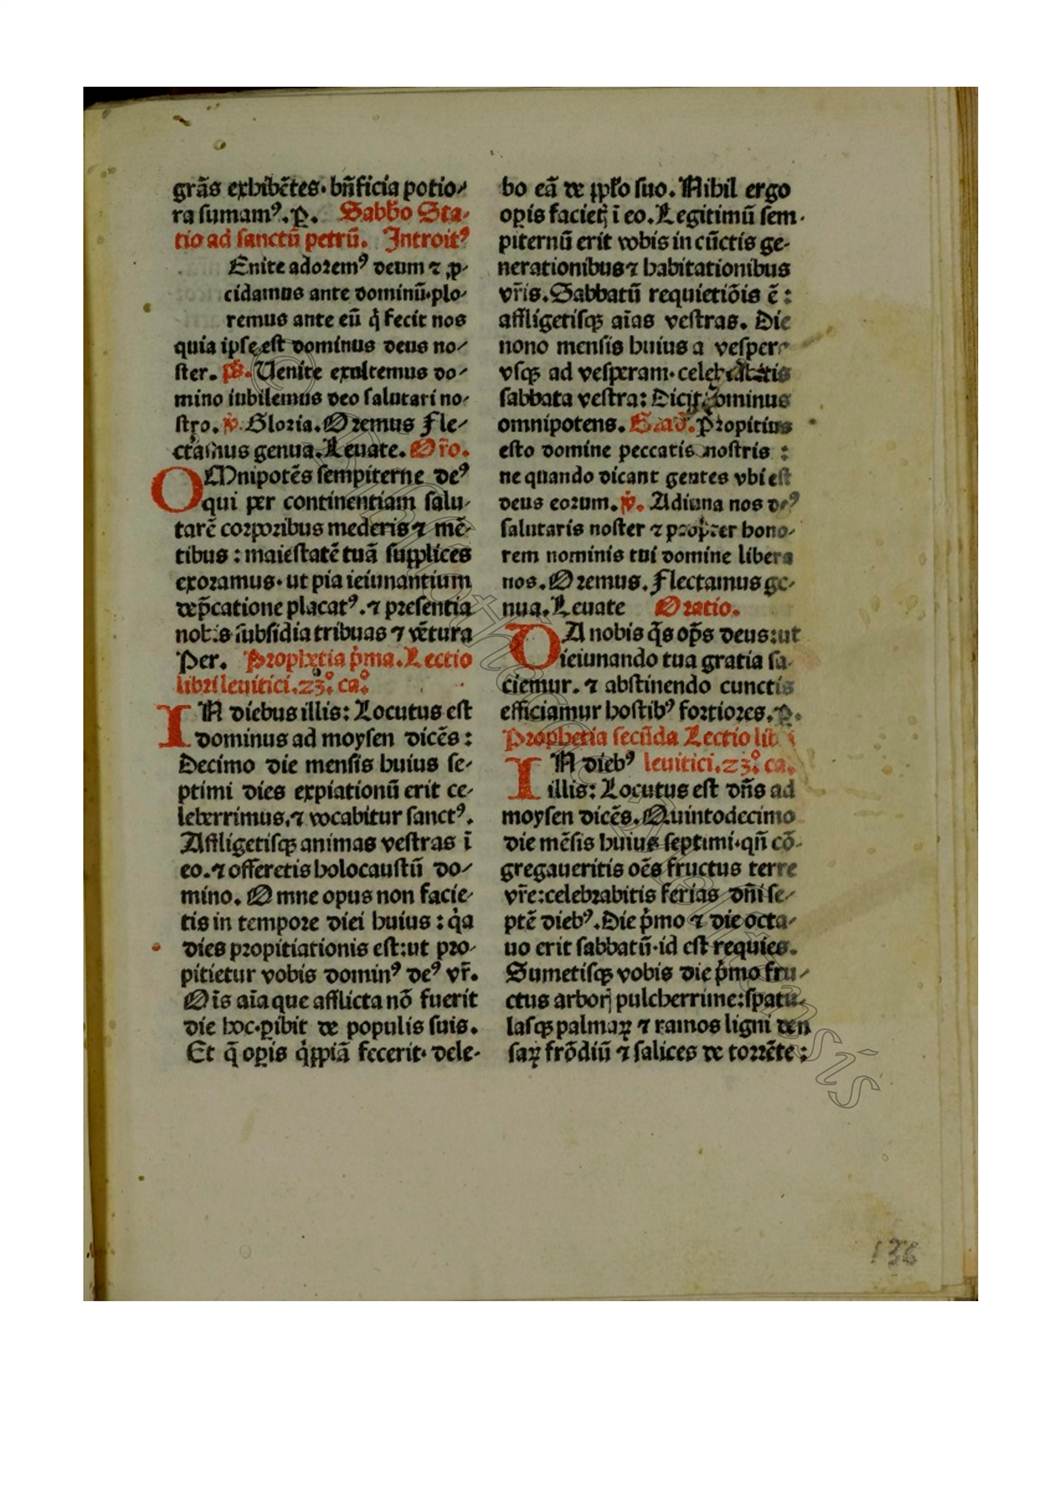 grãs exhibẽtes· bñficia potio⸗
ra sumamꝰ. ꝑ. Sabb̃o Sta⸗
tio ad sanctũ petrũ. Introitꝰ
Enite adoremꝰ deum ⁊ ꝓ⸗
cidamus ante dominũ·plo⸗
remus ante eũ q̇ fecit nos
quia ipse est dominus deus no⸗
ster. p̃s. Uenite exultemus do⸗
mino iubilemus deo salutari no⸗
stro. ꝟ. Gloria. Oremus Fle⸗
ctamus genua. Leuate. Or̃o.
OMnipotẽs sempiterne deꝰ
qui per continentiam salu⸗
tarẽ corporibus mederis ⁊ mẽ⸗
tibus : maiestatẽ tuã supplices
exoramus· ut pia ieiunantium
dep̃catione placatꝰ. ⁊ presentia
nobis subsidia tribuas ⁊ vẽtura
Per. Prophetia p̃ma. Lectio
libri leuitici. 23ͦ. caͦ.
IN diebus illis: Locutus est
dominus ad moysen dicẽs :
Decimo die mensis huius se⸗
ptimi dies expiationũ erit ce⸗
leberrimus. ⁊ vocabitur sanctꝰ.
Affligetisqꝫ animas vestras ĩ
eo. ⁊ offeretis holocaustũ do⸗
mino. Omne opus non facie⸗
tis in tempore diei huius : q̇a
dies propitiationis est: ut pro⸗
pitietur vobis dominꝰ deꝰ vr̃.
Oĩs aĩa que afflicta nõ fuerit
die hoc·ꝑibit de populis suis.
Et q̃ oꝑis q̇ppiã fecerit· dele⸗
bo eã de ꝓpl̃o suo. Nihil ergo
oꝑis facietꝭ ĩ eo. Legitimũ sem⸗
piternũ erit vobis in cũctis ge⸗
nerationibus ⁊ habitationibus
vr̃is. Sabbatũ requietiõis ẽ :
affligetisqꝫ aĩas vestras. Die
nono mensis huius a vespere
vsqꝫ ad vesperam· celebrabitis
sabbata vestra: Dicit dominus
omnipotens. Grad̃. Propitius
esto domine peccatis nostris :
ne quando dicant gentes vbi est
deus eorum. ꝟ. Adiuua nos deꝰ
salutaris noster ⁊ propter hono⸗
rem nominis tui domine libera
nos. Oremus. Flectamus ge⸗
nua. Leuate Oratio.
DA nobis q̃s op̃s deus: ut
ieiunando tua gratia sa⸗
ciemur. ⁊ abstinendo cunctis
efficiamur hostibꝰ fortiores. ꝑ.
Prophetia secũda Lectio libri
IN diebꝰ leuitici. 23ͦ. ca.
illis: Locutus est dñs ad
moysen dicẽs. Quintodecimo
die mẽsis huius septimi·qñ cõ⸗
gregaueritis oẽs fructus terre
vr̃e: celebrabitis ferias dñi se⸗
ptẽ diebꝰ. Die p̃mo ⁊ die octa⸗
uo erit sabbatũ·id est requies.
Sumetisqꝫ vobis die p̃mo fru⸗
ctus arborꝭ pulcherrime: spatu⸗
lasqꝫ palmaꝝ ⁊ ramos ligni den
saꝝ frõdiũ ⁊ salices de torrẽte :
136